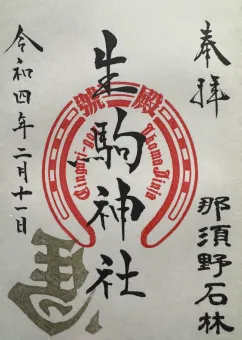 奉拝
那須野石林
生駒神社
Ikoma Jinja
令和四年二月十一日